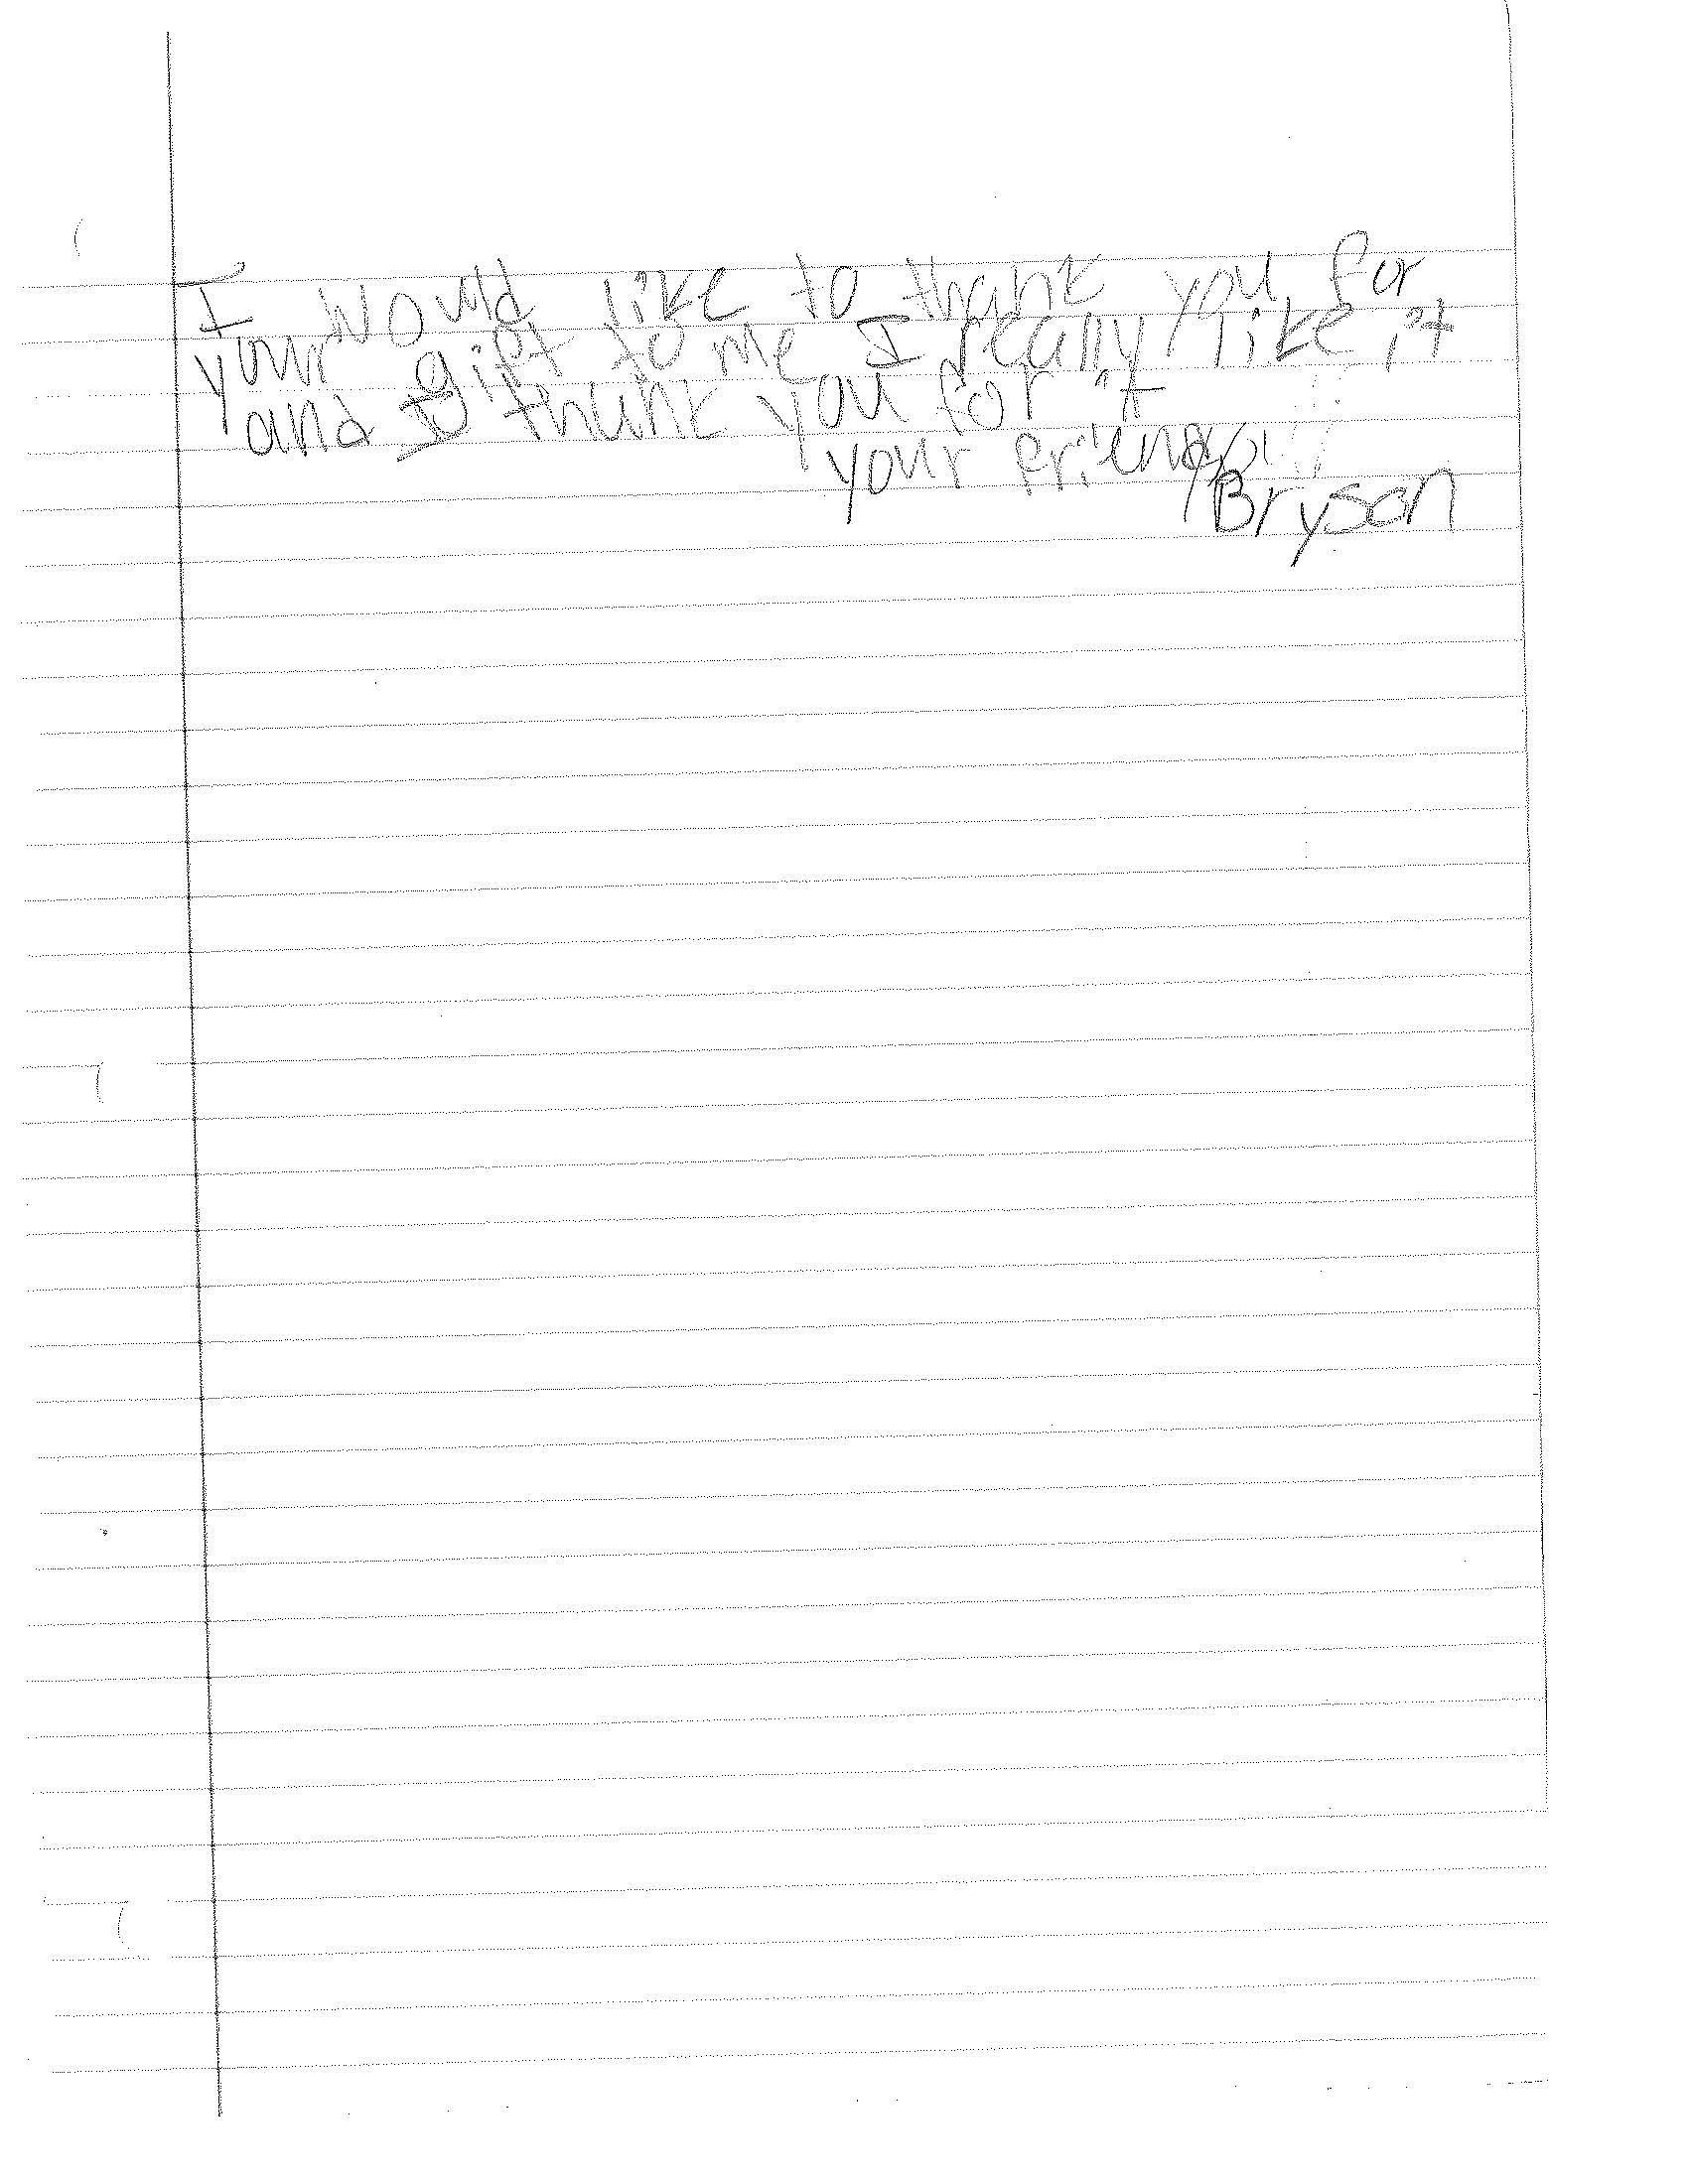 I would like to thank you for
your gift to me I really like it
and I thank you for it
your friend
Bryson